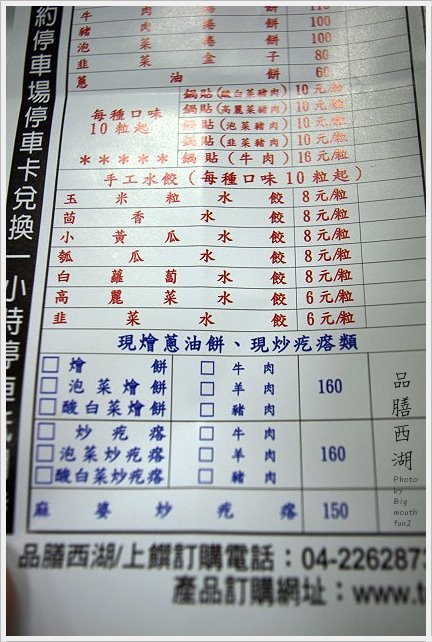 牛肉捲餅 110
豬肉捲餅 100
泡菜捲餅 100
韭菜盒子 80
蔥油餅 60
每種口味
10粒起
*****
鍋貼(酸白菜豬肉) 10元/粒
鍋貼(高麗菜豬肉) 10元/粒
鍋貼(泡菜豬肉) 10元/粒
鍋貼(韭菜豬肉) 10元/粒
鍋貼(牛肉) 16元/粒
手工水餃(每種口味10粒起)
玉米粒水餃 8元/粒
茴香水餃 8元/粒
小黃瓜水餃 8元/粒
瓠瓜水餃 8元/粒
白蘿蔔水餃 8元/粒
高麗菜水餃 6元/粒
韭菜水餃 6元/粒
現燴蔥油餅、現炒疙瘩類
□燴餅 □牛肉
□泡菜燴餅 □羊肉 160
□酸白菜燴餅 □豬肉
□炒疙瘩 □牛肉
□泡菜炒疙瘩 □羊肉 160
□酸白菜炒疙瘩 □豬肉
麻婆炒疙瘩 150
品膳西湖/上饌訂購電話：04-2262873
產品訂購網址：www.t
約停車場停車卡兌換一小時停車
品膳西湖
Photo
by
Big
mouth
fun2